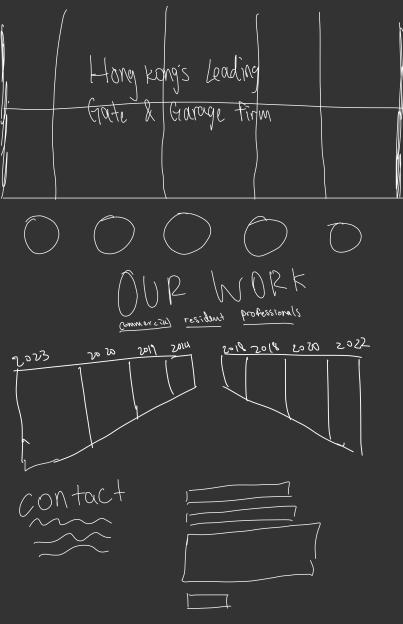 Hong Kong's Leading
Gate & Garage Firm
OUR WORK
commercial resident professionals
2023 2020 2019 2014 2018 2018 2020 2022
contact